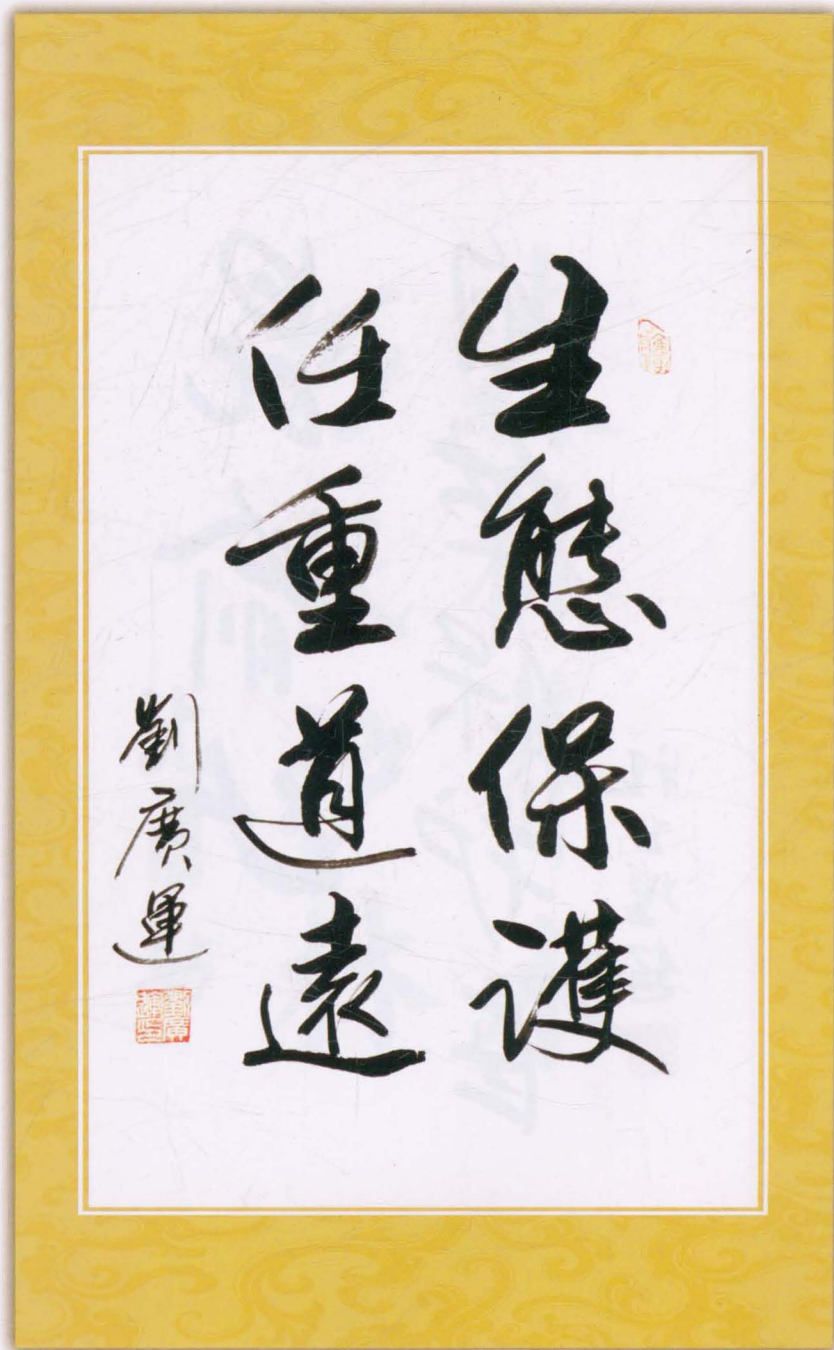 生態保護
任重道遠
劉廣運